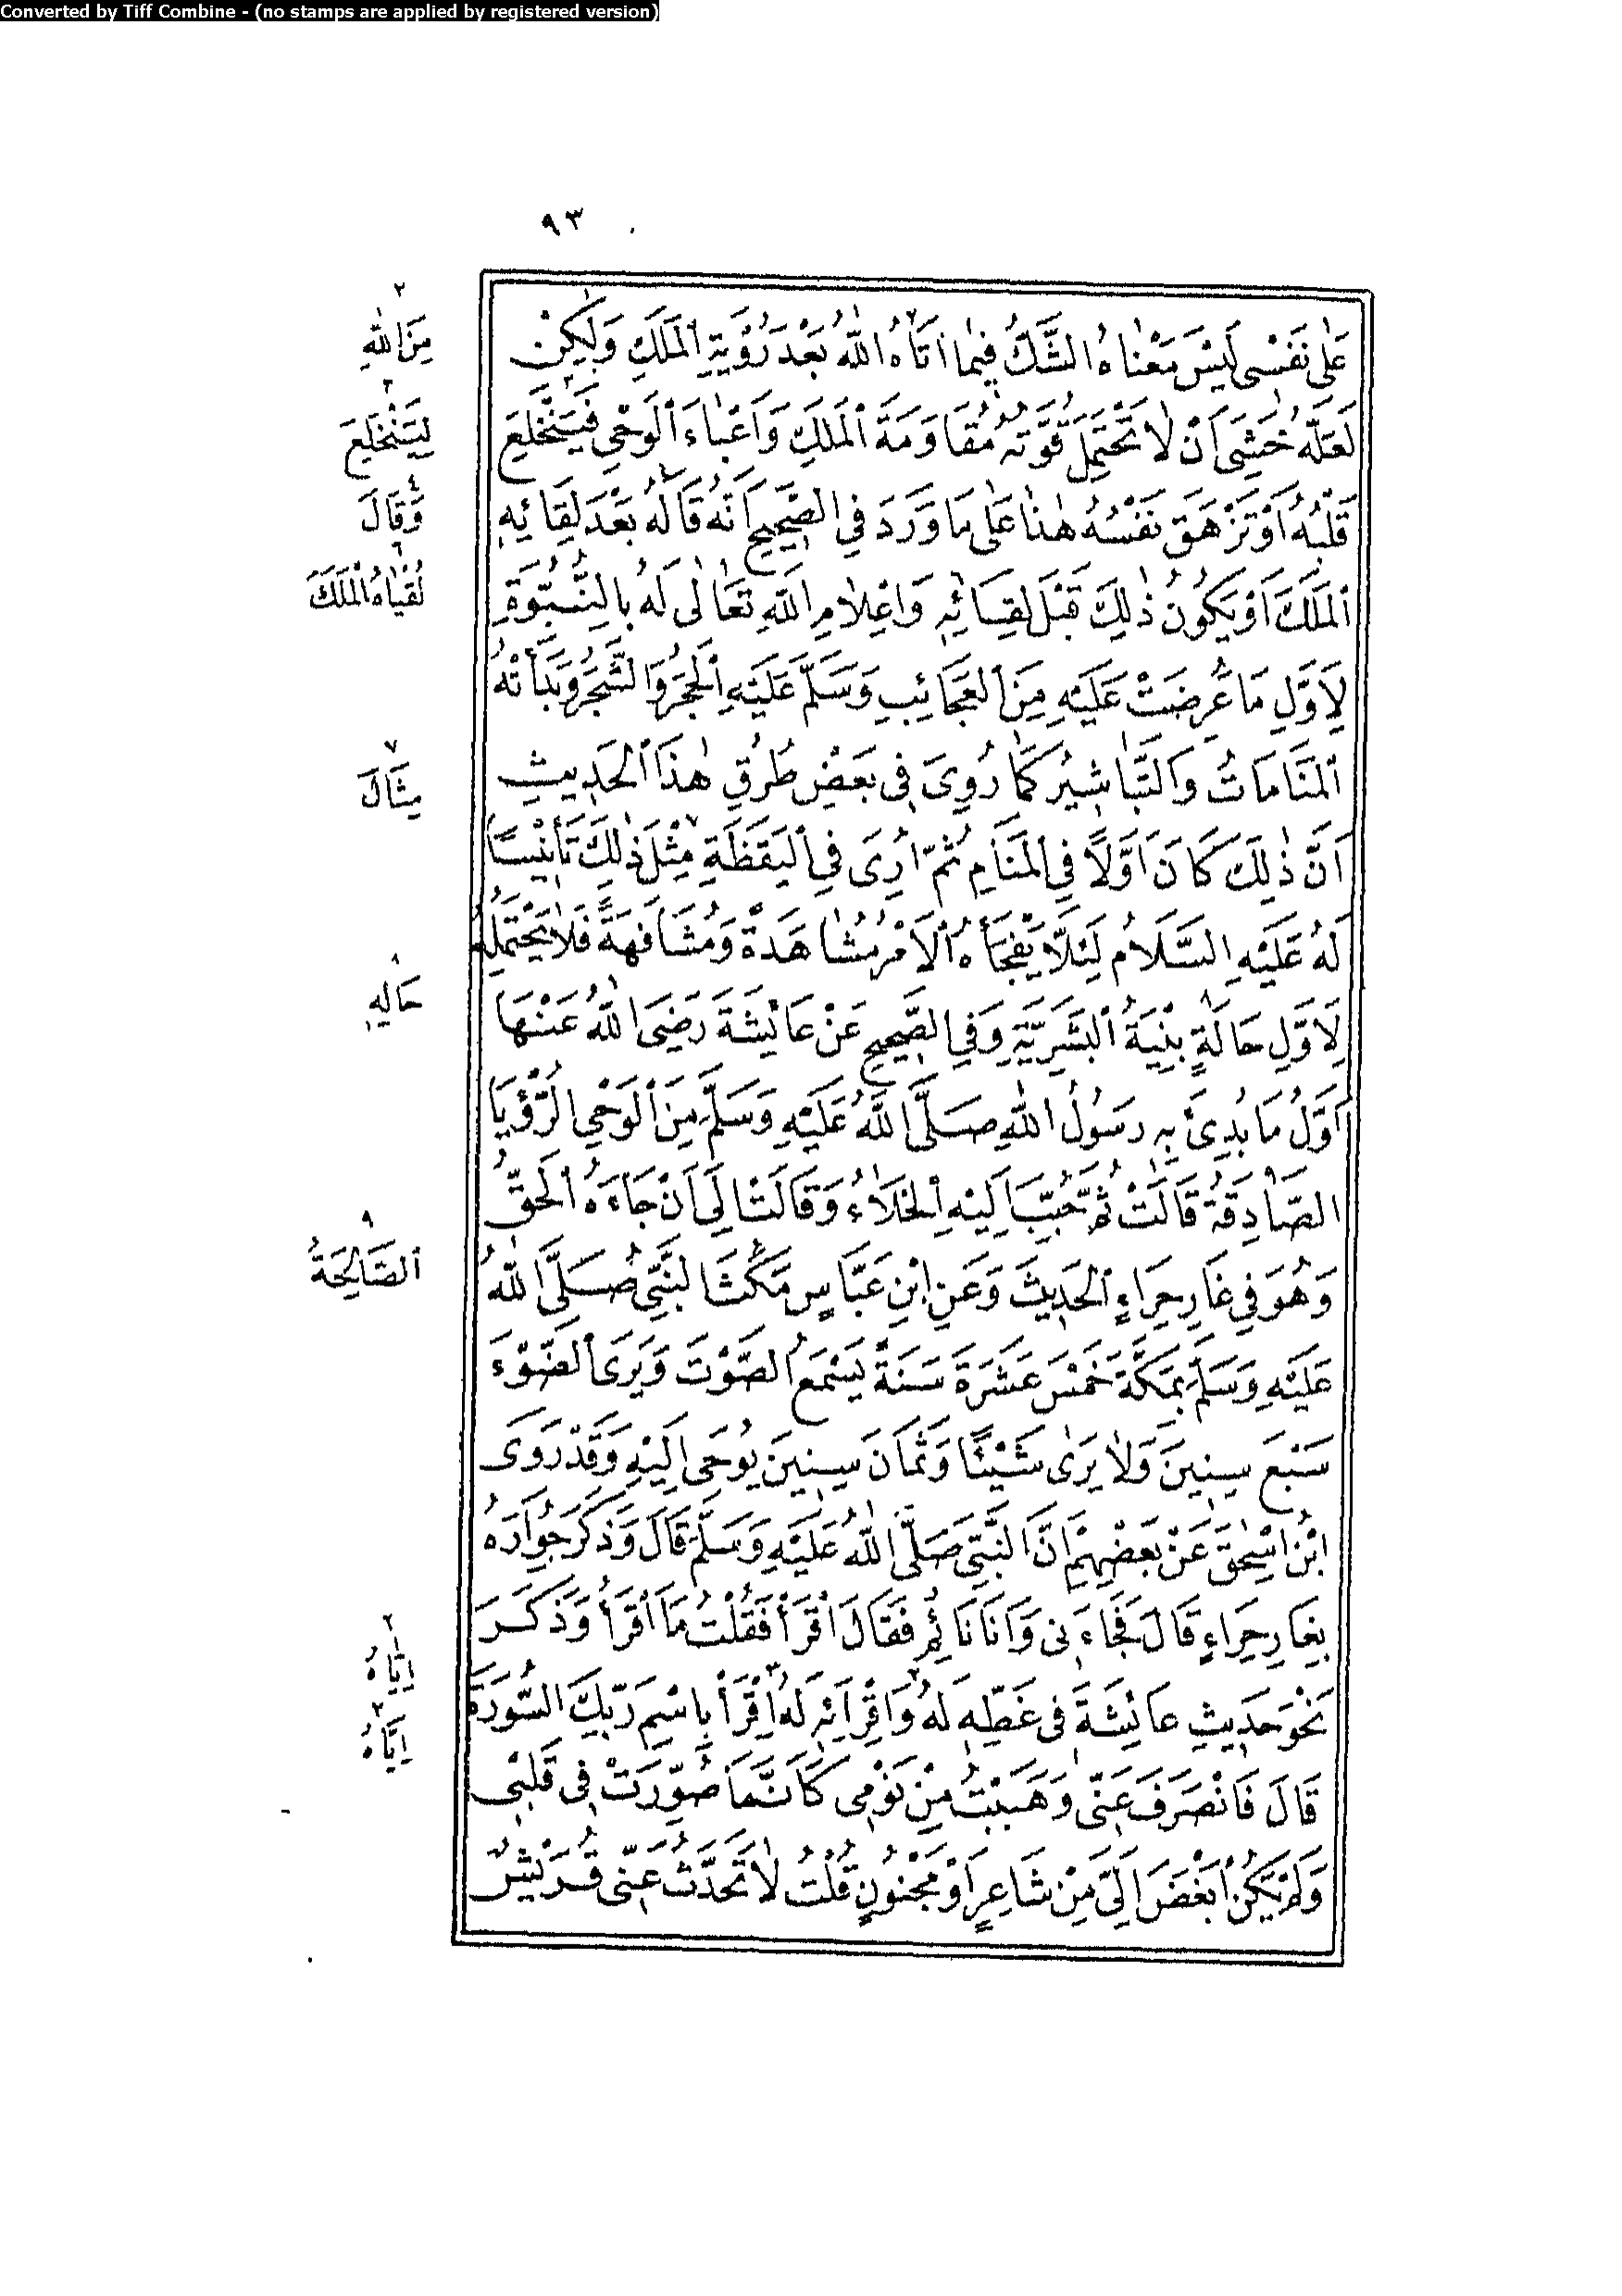 Converted by Tiff Combine - (no stamps are applied by registered version)
٩٣
عَلَى نَفْسِى لَيْسَ مَعْنَاهُ الشَّكُّ فِيمَا اٰتَاهُ اللّٰهُ بَعْدَ رُؤْيَةِ الْمَلَكِ وَلٰكِنْ
لَعَلَّهُ خَشِىَ اَنْ لَا تَحْتَمِلَ قُوَّتُهُ مُقَاوَمَةَ الْمَلَكِ وَاَعْبَاءَ الْوَحْىِ فَيَنْخَلِعَ
قَلْبُهُ اَوْ تَزْهَقَ نَفْسُهُ هٰذَا عَلَى مَا وَرَدَ فِى الصَّحِيحِ اَنَّهُ قَالَهُ بَعْدَ لِقَائِهِ
الْمَلَكَ اَوْ يَكُونُ ذٰلِكَ قَبْلَ لِقَائِهِ وَاِعْلَامِ اللّٰهِ تَعَالٰى لَهُ بِالنُّبُوَّةِ
لِاَوَّلِ مَا عُرِضَتْ عَلَيْهِ مِنَ الْعَجَائِبِ وَسَلَّمَ عَلَيْهِ الْحَجَرُ وَالشَّجَرُ وَبَدَأَتْهُ
الْمَنَامَاتُ وَالتَّبَاشِيرُ كَمَا رُوِىَ فِى بَعْضِ طُرُقِ هٰذَا الْحَدِيثِ
اَنَّ ذٰلِكَ كَانَ اَوَّلًا فِى الْمَنَامِ ثُمَّ اُرِىَ فِى الْيَقَظَةِ مِثْلَ ذٰلِكَ تَأْنِيسًا
لَهُ عَلَيْهِ السَّلَامُ لِئَلَّا يَفْجَأَهُ الْاَمْرُ مُشَاهَدَةً وَمُشَافَهَةً فَلَا يَحْتَمِلُهُ
لِاَوَّلِ حَالَةٍ بِنْيَةُ الْبَشَرِيَّةِ وَفِى الصَّحِيحِ عَنْ عَائِشَةَ رَضِىَ اللّٰهُ عَنْهَا
اَوَّلُ مَا بُدِئَ بِهِ رَسُولُ اللّٰهِ صَلَّى اللّٰهُ عَلَيْهِ وَسَلَّمَ مِنَ الْوَحْىِ الرُّؤْيَا
الصَّادِقَةُ قَالَتْ ثُمَّ حُبِّبَ اِلَيْهِ الْخَلَاءُ وَقَالَتْ اِلَى اَنْ جَاءَهُ الْحَقُّ
وَهُوَ فِى غَارِ حِرَاءٍ الْحَدِيثَ وَعَنِ ابْنِ عَبَّاسٍ مَكَثَ النَّبِىُّ صَلَّى اللّٰهُ
عَلَيْهِ وَسَلَّمَ بِمَكَّةَ خَمْسَ عَشْرَةَ سَنَةً يَسْمَعُ الصَّوْتَ وَيَرَى الضَّوْءَ
سَبْعَ سِنِينَ وَلَا يَرٰى شَيْئًا وَثَمَانَ سِنِينَ يُوحٰى اِلَيْهِ وَقَدْ رَوَى
ابْنُ اِسْحٰقَ عَنْ بَعْضِهِمْ اَنَّ النَّبِىَّ صَلَّى اللّٰهُ عَلَيْهِ وَسَلَّمَ قَالَ وَذَكَرَ جِوَارَهُ
بِغَارِ حِرَاءٍ قَالَ فَجَاءَنِى وَاَنَا نَائِمٌ فَقَالَ اقْرَأْ فَقُلْتُ مَا اَقْرَأُ وَذَكَرَ
نَحْوَ حَدِيثِ عَائِشَةَ فِى غَطِّهِ لَهُ وَاِقْرَائِهِ لَهُ اِقْرَأْ بِاسْمِ رَبِّكَ السُّورَةَ
قَالَ فَانْصَرَفَ عَنِّى وَهَبَبْتُ مِنْ نَوْمِى كَاَنَّمَا صُوِّرَتْ فِى قَلْبِى
وَلَمْ يَكُنْ اَبْغَضَ اِلَىَّ مِنْ شَاعِرٍ اَوْ مَجْنُونٍ قُلْتُ لَا تَحَدَّثُ عَنِّى قُرَيْشٌ
٢
مِنَ اللّٰهِ
٣
لِيَنْخَلِعَ
٤
وَقَالَ
٦
لُقْيَاهُ الْمَلَكَ
٧
مِثَالَ
٨
حَالِهِ
٩
الصَّالِحَةُ
٢
اِيَّاهُ
٣
اِيَّاهُ